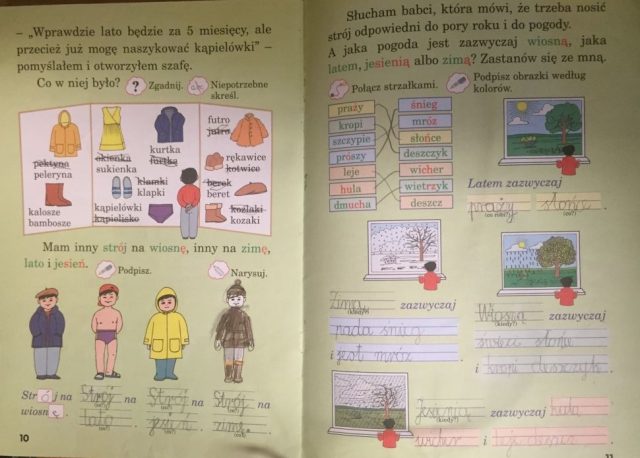 – „Wprawdzie lato będzie za 5 miesięcy, ale
przecież już mogę naszykować kąpielówki” –
pomyślałem i otworzyłem szafę.
Co w niej było? ? Zgadnij. Niepotrzebne
skreśl.
pektyna
peleryna
kalosze
bambosze
okienka
sukienka
kurtka
furtka
klamki
klapki
kąpielówki
kąpielisko
futro
jutro
rękawice
kotwice
berek
beret
koźlaki
kozaki
Mam inny strój na wiosnę, inny na zimę,
lato i jesień. Podpisz. Narysuj.
Strój na
wiosnę
Strój na
(co?)
lato
(co?)
Strój na
(co?)
jesień
(co?)
Strój na
(co?)
zimę.
(co?)
10
Słucham babci, która mówi, że trzeba nosić
strój odpowiedni do pory roku i do pogody.
A jaka pogoda jest zazwyczaj wiosną, jaka
latem, jesienią albo zimą? Zastanów się ze mną.
Połącz strzałkami. Podpisz obrazki według
kolorów.
praży
kropi
szczypie
prószy
leje
hula
dmucha
śnieg
mróz
słońce
deszczyk
wicher
wietrzyk
deszcz
Latem zazwyczaj
praży słońce
(co robi?) (co?)
Zimą zazwyczaj
(kiedy?)
pada śnieg
i jest mróz
Wiosną zazwyczaj
(kiedy?)
świeci słońce
i kropi deszczyk
Jesienią zazwyczaj hula
(kiedy?)
wicher i leje deszcz
11